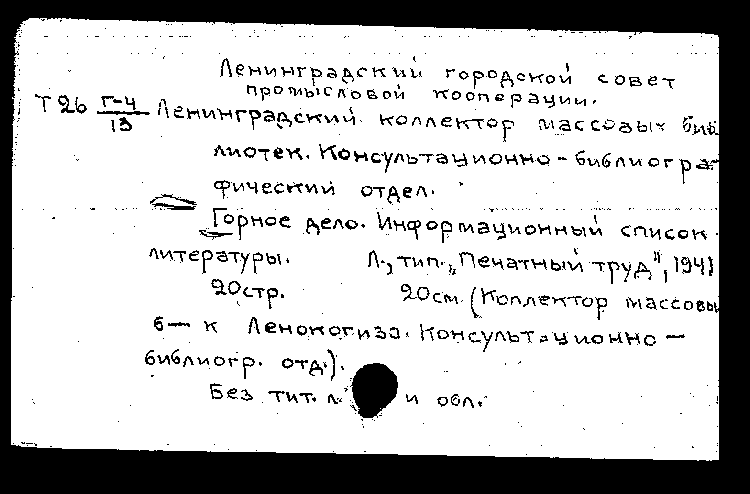 Ленинградский городской совет
промысловой кооперации.
Т 26 Г-4/13 Ленинградский коллектор массовых биб
лиотек. Консультационно-библиогра-
фический отдел.
Горное дело. Информационный список
литературы. Л., тип. „Печатный труд", 1941
20стр. 20см. (Коллектор массовы
б—к Леногиза. Консультационно—
библиогр. отд.).
Без тит. л. и обл.